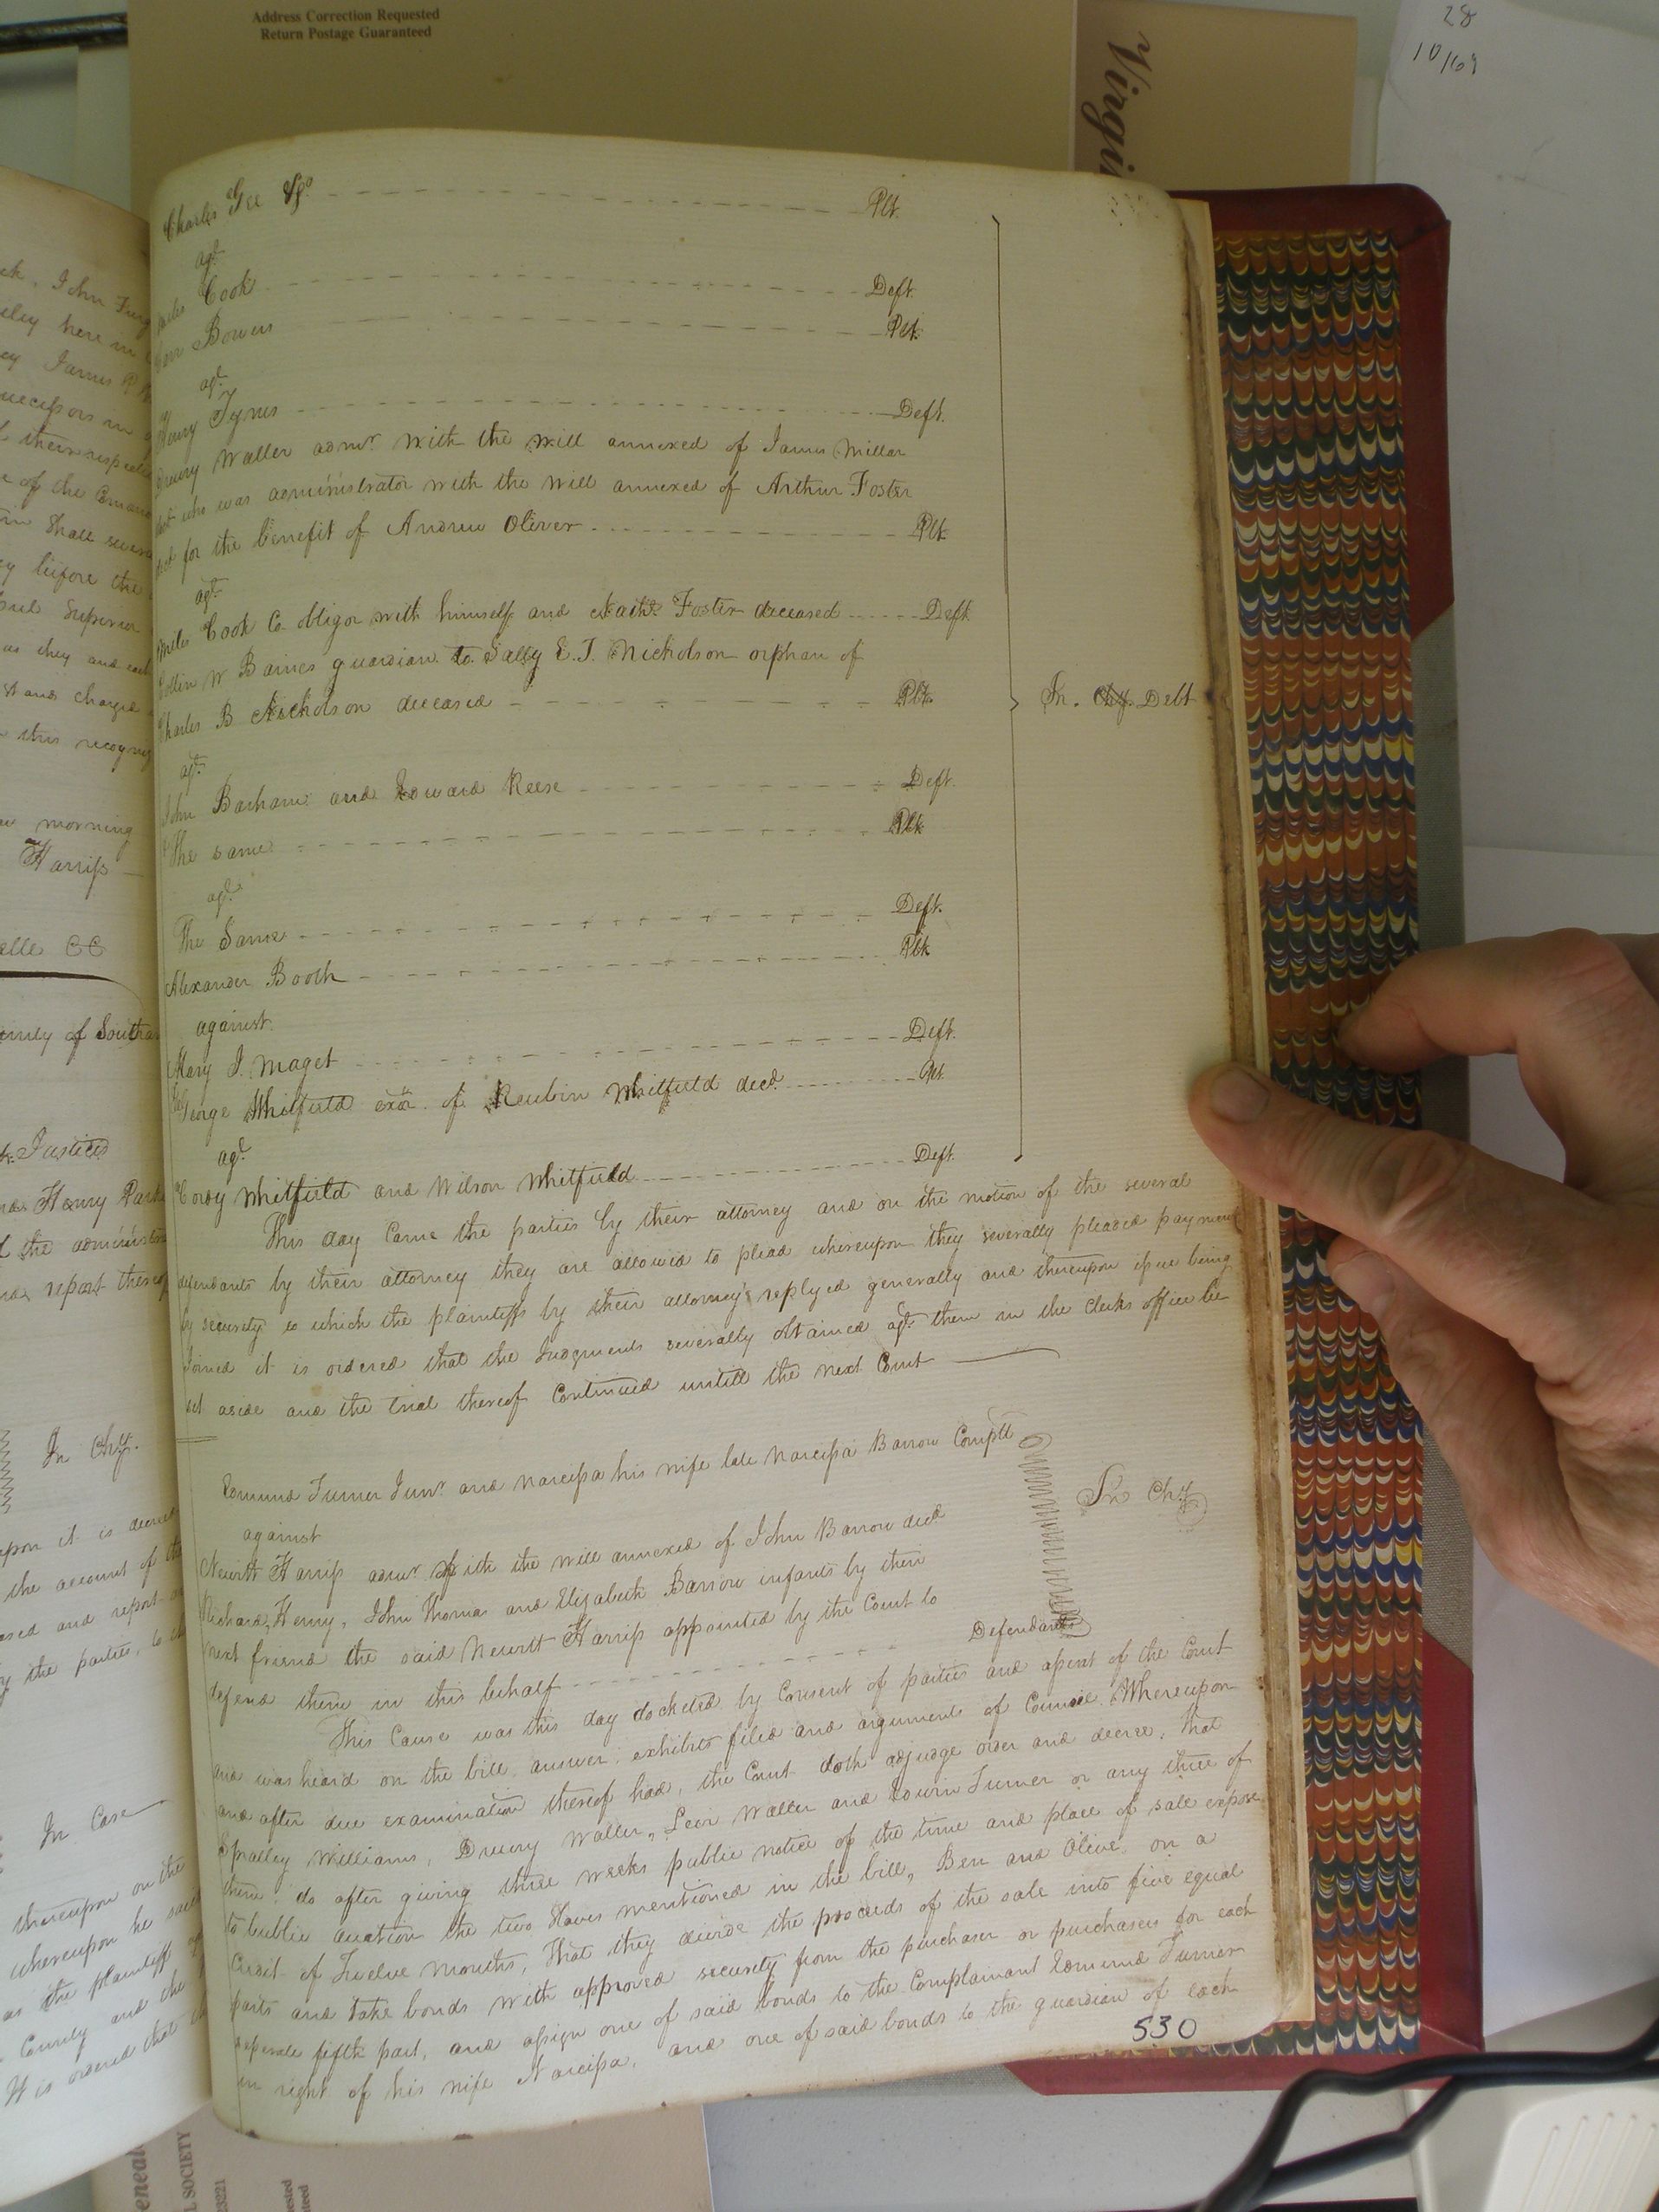 Address Correction Requested
Return Postage Guaranteed
Virgi
28
10/69
Charles Gee
Plt.
agt
Cook
Deft.
Bowers
Plt.
agt
Henry Tynes
Deft.
Drewry Waller admr. with the will annexed of James Millar
who was administrator with the will annexed of Arthur Foster
for the benefit of Andrew Oliver
Plt
agt
Miles Cook Co. obligor with himself and Foster deceased
Deft
W Baines guardian to Sally E. T. Nicholson orphan of
Charles B Nicholson deceased
Plt.
In. Chy. Debt
agt
John Barham and Edward Reese
Deft.
The same
Plt
agt.
The Same
Deft.
Alexander Booth
Plt
against
Mary J. Maget
Deft.
George Whitfield exor. of Reubin Whitfield decd.
Plt
agt.
Whitfield and Wilson Whitfield
Deft.
This day Came the parties by their attorney and on the motion of the several
defendants by their attorney they are allowed to plead whereupon they severally pleaded payment
by security to which the plaintiffs by their attorney's replyed generally and thereupon issue being
Joined it is ordered that the Judgments severally obtained agt. them in the clerks office be
set aside and the trial thereof Continued untill the next Court
Edmund Turner Junr. and Narcissa his wife late Narcissa Barrow Complt
against
In Chy
Newitt Harriss admr. with the will annexed of John Barrow decd
Richard, Henry, John Thomas and Elizabeth Barrow infants by their
next friend the said Newitt Harriss appointed by the Court to
defend them in this behalf
Defendants
This Cause was this day docketed by Consent of parties and assent of the Court
and was heard on the bill answer, exhibits filed and arguments of Council Whereupon
and after due examination thereof had, the Court doth adjudge order and decree, that
Spratley Williams, Drewry Waller, Levi Waller and Edwin Turner or any three of
them do after giving three weeks public notice of the time and place of sale expose
to public auction the two slaves mentioned in the bill, Ben and Olive, on a
Credit of Twelve months, That they divide the proceeds of the sale into five equal
parts and take bonds with approved security from the purchaser or purchasers for each
seperate fifth part, and assign one of said bonds to the Complainant Edmund Turner
in right of his wife Narcissa, and one of said bonds to the guardian of each
530
John
here in
James
morning
Harriss
CC
Justices
Henry
report
In Chy.
upon it is
the account of
and report
the parties, to
In Case
thereupon on the
whereupon he
as the plaintiff
County and the
It is ordered that
L SOCIETY
23221